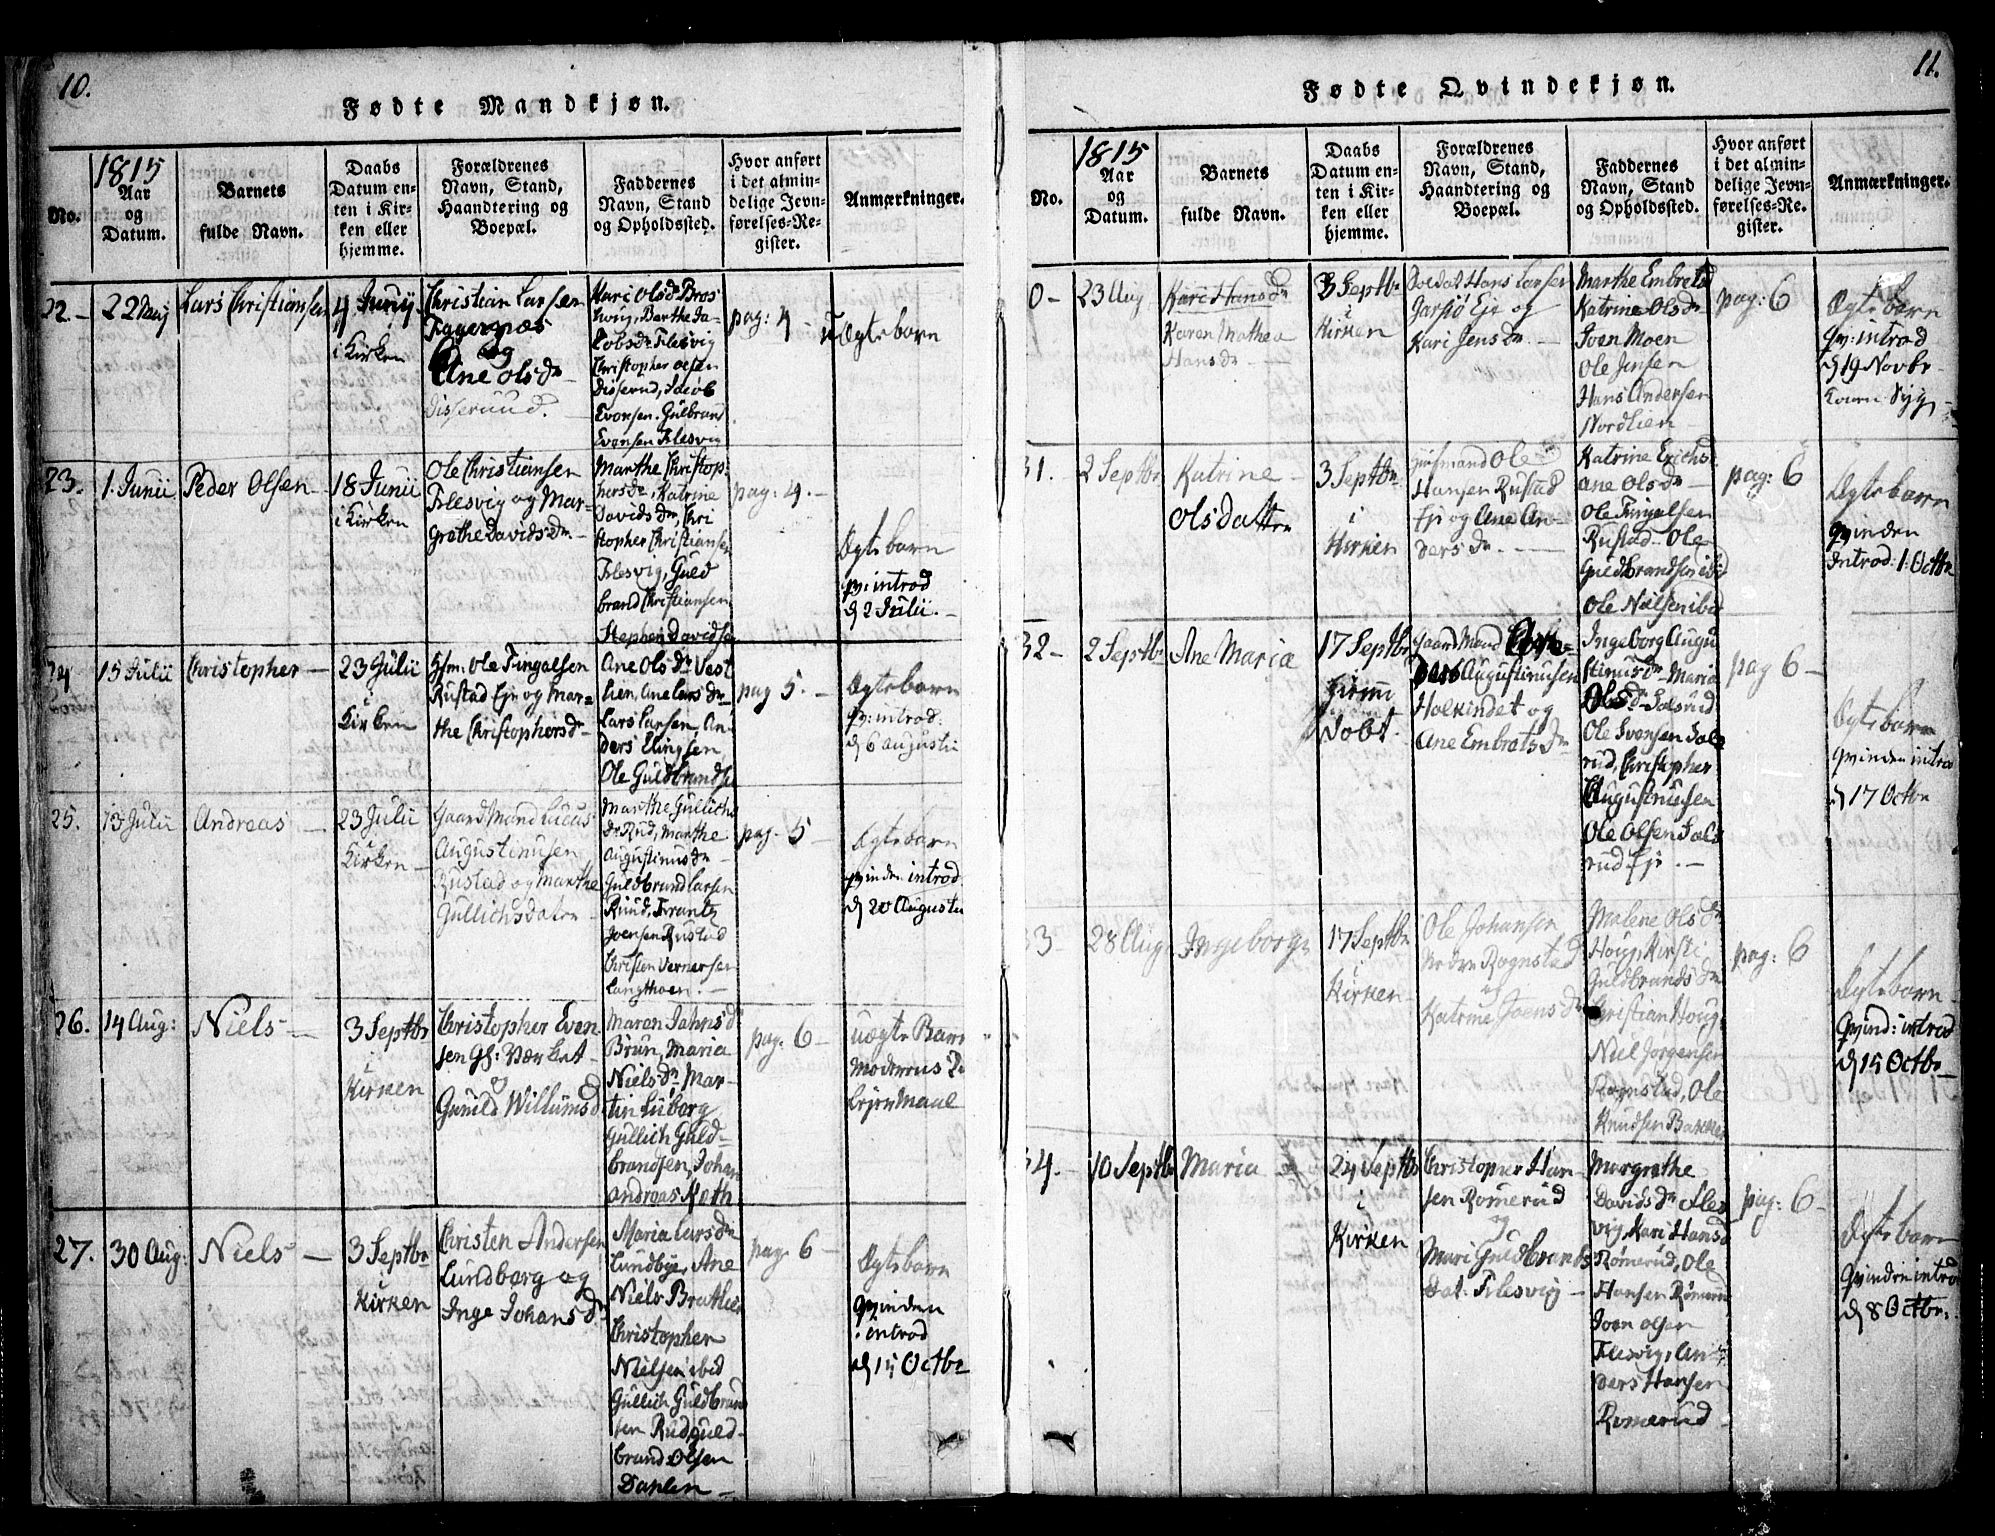 10.
Fødte Mandkjøn.
No.
1815
Aar
og
Datum.
Barnets
fulde Navn.
Daabs
Datum en-
ten i Kir-
ken eller
hjemme.
Forældrenes
Navn, Stand,
Haandtering og
Boepæl.
Faddernes
Navn, Stand
og Opholdssted.
Hvor anført
i det almin-
delige Jevn-
førelses-Re-
gister.
Anmærkninger.
22.-
22 Maij
Lars Christiansen
4 Junij
i Kirken
Christian Larsen
Fagernæs
og
Ane Olsdr
Disserud.
Kari Olsdr Bros
Berthe Ja-
cobsdr Flesvig
Christopher Olsen
Disserud, Jacob
Evensen. Gulbrand
Evensen Flesvig
pag: 4
Uægte barn
23.
1. Junii
Peder Olsen
18 Junii
i Kirken
Ole Christiansen
Flesvig og Mar-
grethe Davidsdr
Marthe Christop-
hersdr, Katrine
Davidsdr, Chri
stopher Christiansen
Flesvig, Guld
brand Christiansen
Stephen Davidsen
pag: 4.-
Ægte barn
qv: introd
d 2 Julii.-
24
15 Julii
Christopher
23 Julii
i
Kirken
H:m: Ole Fingalsen
Rustad Eje og Mar-
the Christophersdr
Ane Olsdr Vest
lien, Ane Larsdr
Lars Larsen, An-
ders Elingsen
Ole Guldbrandse
pag 5.-
Ægte barn
qv: introd:
d 6 Augustii
25.
13 Julii
Andreas
23 Julii
i
Kirken
Gaard Mand Lucas
Augustinusen
Rustad og Marthe
Gullichsdatter
Marthe Gullichs
dr Rud, Marthe
Augustinusdr
Guldbrand Larsen
Ruud, Frantz
Joensen Rustad
Christen Vernersen
Langthoen.-
pag. 5
Ægte barn
qvinden introd
d 20 Augustu
26.
14 Aug:
Niels
3 Septbr
i
Kirken
Christopher Even-
sen Gl: Værket
Gunild Willumsd
Maren Jahnsd
Brun, Maria
Nielsdr Mar-
tin Luborg
Gullich Guld-
brandsen, Johan
Andreas Roth
pag: 6-
uægte Barn
Moderens 2
Lejer Maal
27.
30 Aug:
Niels
3 Septbr
Kirken
Christen Andersen
Lundborg og
Inge Johansdr
Maria Larsdr
Lundbye, Ane
Niels Brathe
Christopher
Nielsen ibid
Gullich Guldbrand
sen Rud, Guld-
brand Olsen
Dahlen
pag. 6-
Ægte barn
Qvinden
introd
d 15 Octbr
11.
Fødte Qvindekjøn.
No.
1815
Aar
og
Datum.
Barnets
fulde Navn.
Daabs
Datum en-
ten i Kir-
ken eller
hjemme.
Forældrenes
Navn, Stand,
Haandtering og
Boepæl.
Faddernes
Navn, Stand
og Opholdssted.
Hvor anført
i det almin-
delige Jevn-
førelses-Re-
gister.
Anmærkninger.
0-
23 Aug
Kari Hansdr
Karen Mathea
Hansdr
3 Septbr
i
Kirken
Soldat Hans Larsen
Garsjö Eje og
Kari Jensdr.
Marthe Embretsd
Katrine Olsdr
Joen Moen
Ole Jensen
Hans Andersen
Nordlien
pag: 6
Ægte barn
Qv: introd
d 19 Novbr
31.
2 Septbr
Katrine
Olsdatter
3 Septbr
i
Kirken
Huusmand Ole
Hansen Rustad
Eje og Ane An-
dersdr.
Katrine Erichsd
Ane Olsdr
Ole Fingalsen
Rustad Ole
Guldbrandsen ibid
Ole Nielsen ibid
pag: 6
Ægte barn
qvinden
Introd: 1. Octbr
32-
2 Septbr
Ane Maria
17 Septbr
Hjemme
døbt.
Gaard Mand
ders Augustinusen
Holkindet og
Ane Embretsdr
Ingeborg Augu
stinusdr Maria
Olsdr Solsrud
Ole Svensen Sols
rud, Christopher
Augustinusen
Ole Olsen Sols
rud Eje.
pag 6-
Ægte barn
qvinden introd
d 17 Octbr
33-
28 Aug
Ingeborg
17 Septbr
i
Kirken
Ole Johansen
Nedre Rognstad
og
Katrine Joensdr
Malene Olsdr
Houg, Kirsti
Guldbrandsdr
Christian Houg
Niel Jørgensen
Rognstad, Ole
Knudsen Bakken
pag: 6
Ægte barn
Qvind: introd
d 15 Octbr
34.
10 Septbr
Maria
24 Septbr
i
Kirken
Christopher Han-
sen Rømerud
og
Mari Guldbrands
dat. Flesvig
Margrethe
Davidsdr Fles
vig, Kari Hansd
Rømerud, Ole
Hansen Rømerud
Joen Olsen
Flesvig, An-
ders Hansen
Romerud
pag: 6-
Ægte barn
Qvinden intro
d 8 Octbr.